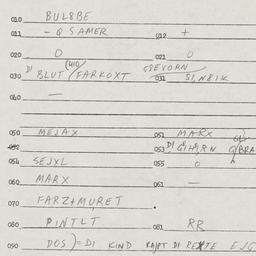 010 BUL8BE
011 - Q SAMER 012 +
020 O 021 O
030 DI BLUT (410) FARKOXT 031 GSEVORN SI,N8IK
040 —
050 MEJAX 051 MARX
052 053 DI GIHIRN
054 SEJXL 055 O
060 MARX 061 —
070 FARZTMURET
080 PINTLT 081 RR
090 DOS = DI KIND DI